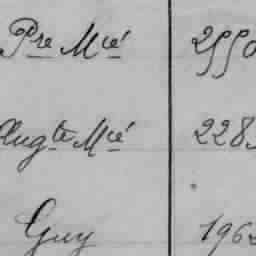 Pre Mié 2550
Augte Mié 2283
Guy 196